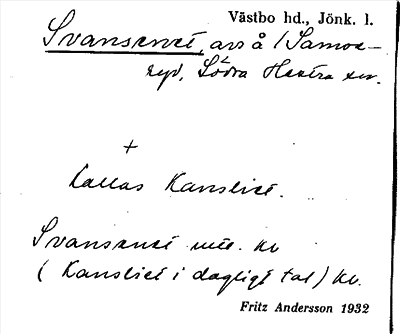 Västbo hd., Jönk. l.
Svansenet, avs å / Samse-
ryd, Södra Hestra sn.
+
Kallas Kansliet.
Svansenet
( Kansliet i dagligt tal )
Fritz Andersson 1932